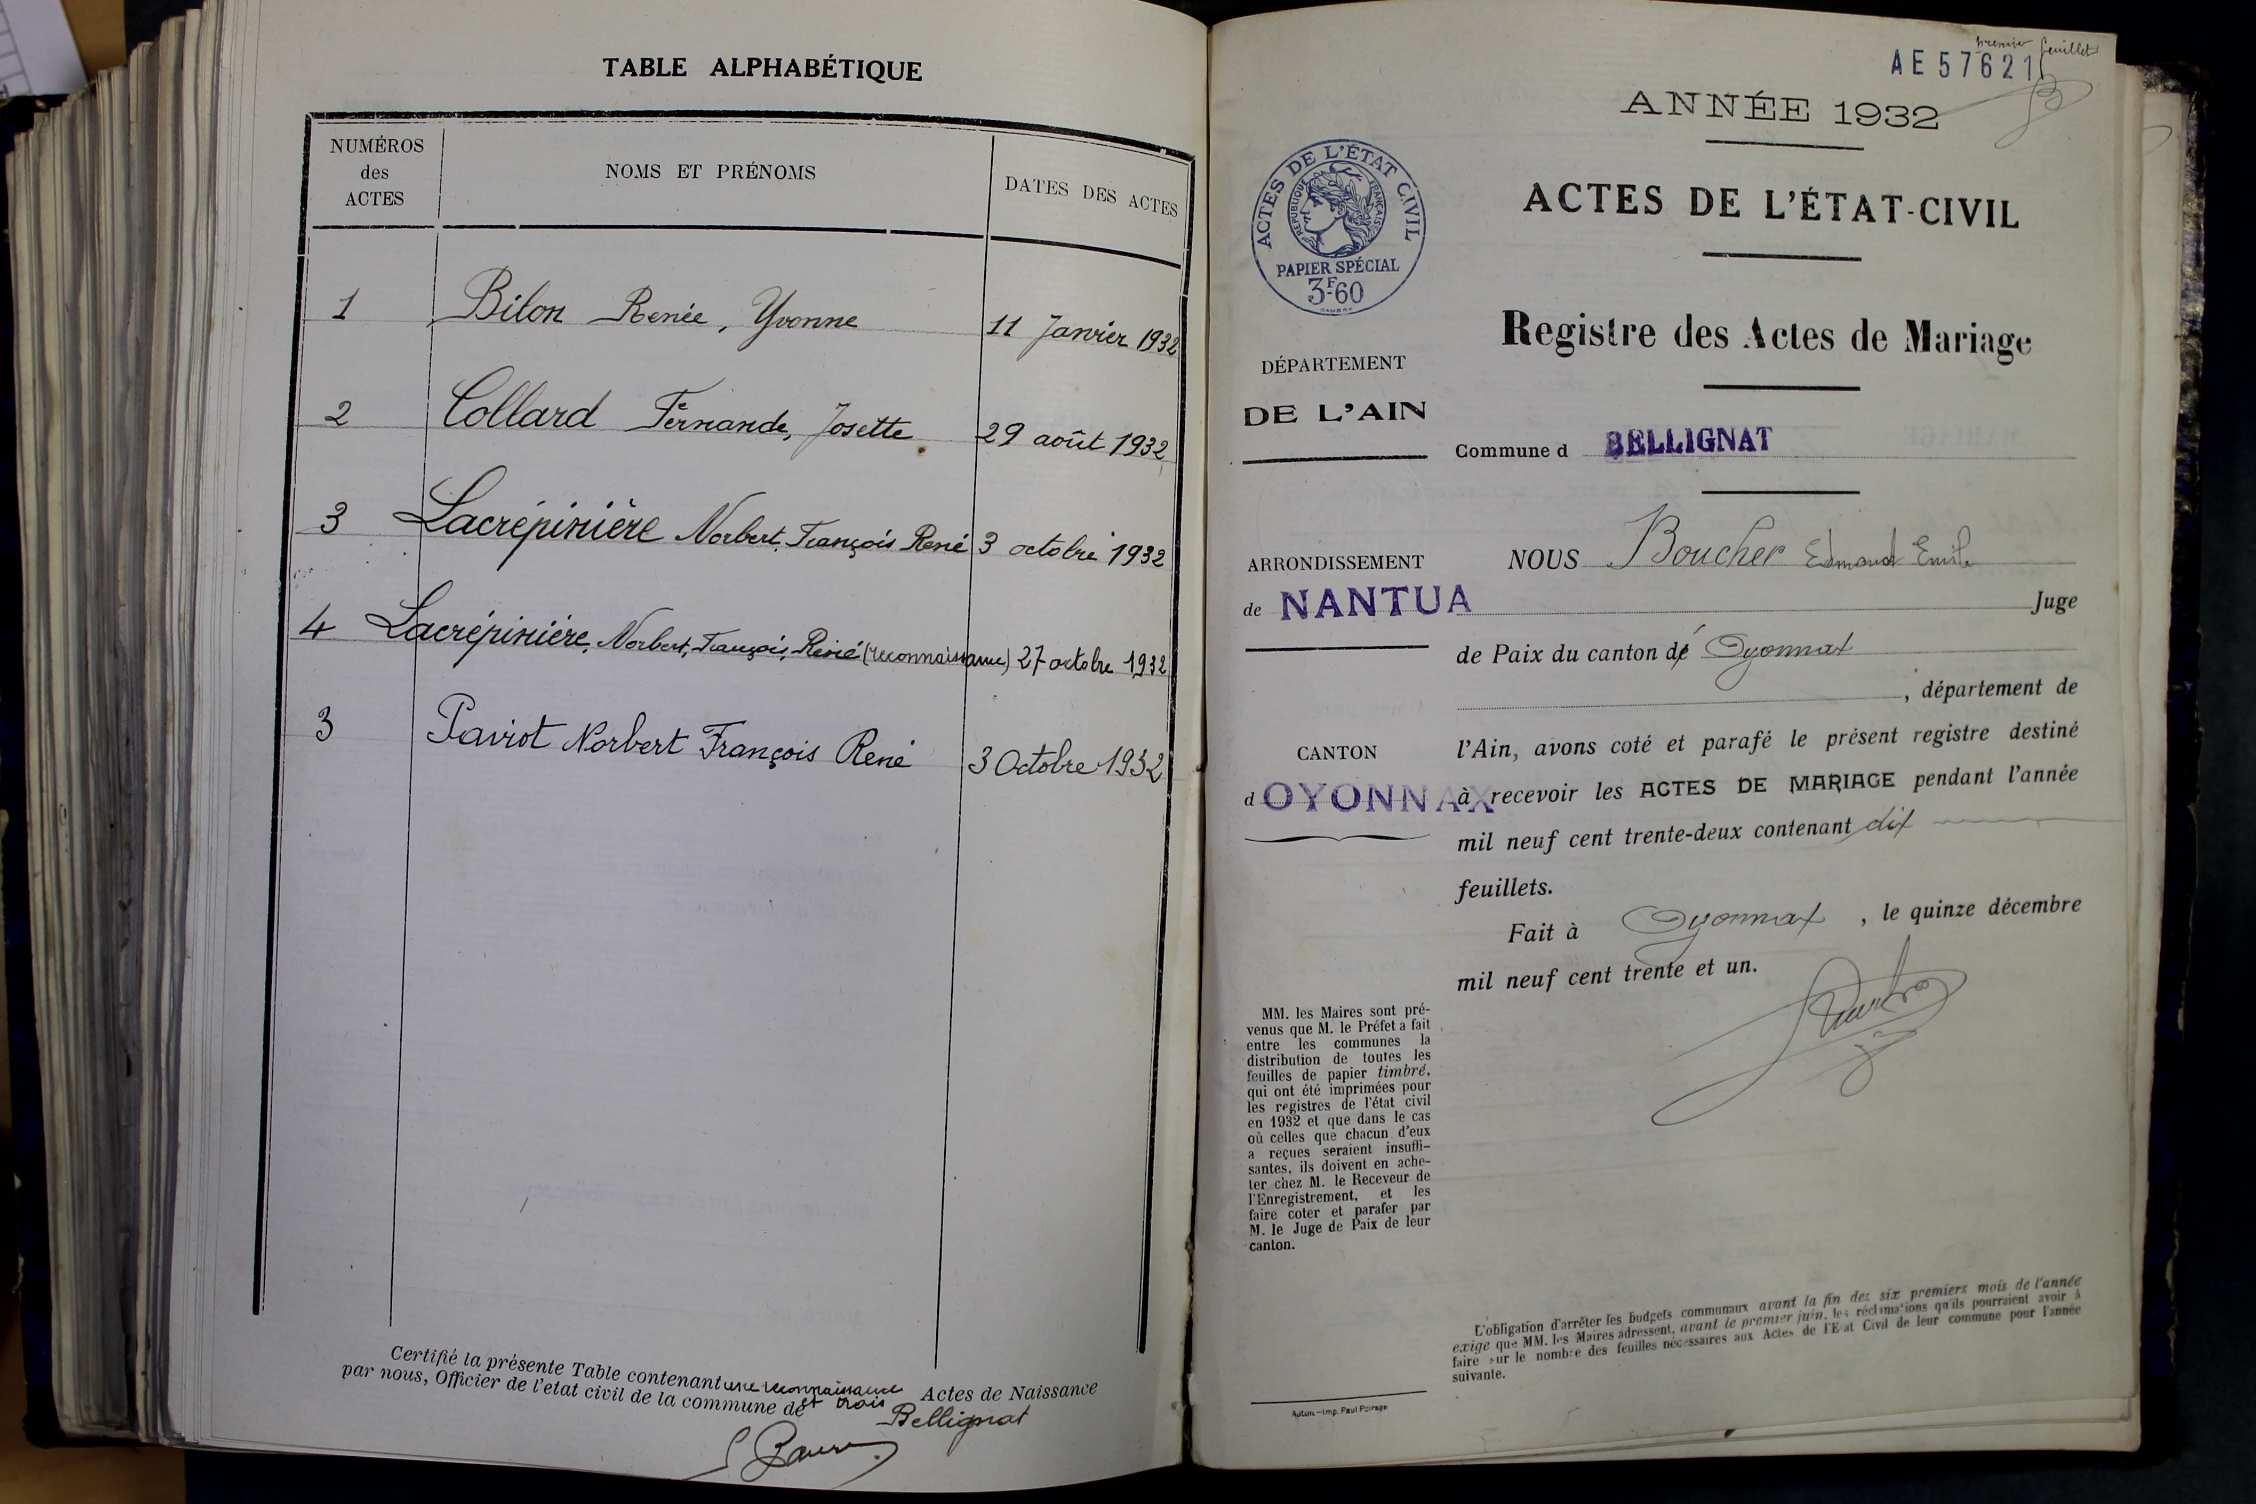 TABLE ALPHABÉTIQUE
NUMÉROS
des
ACTES
NOMS ET PRÉNOMS
DATES DES ACTES
1 Bilon Renée, Yvonne 11 Janvier 1932
2 Collard Fernande, Josette 29 août 1932
3 Lacrépinière Norbert, François René 3 octobre 1932
4 Lacrépinière, Norbert, François, René (reconnaissance) 27 octobre 1932
3 Paviot Norbert François René 3 Octobre 1932
Certifié la présente Table contenant une reconnaissance et trois Actes de Naissance
par nous, Officier de l'etat civil de la commune de Bellignat
premier feuillet
AE 57621
ANNÉE 1932
ACTES DE L'ÉTAT CIVIL
RÉPUBLIQUE FRANÇAISE
PAPIER SPÉCIAL
3F60
ACTES DE L'ÉTAT-CIVIL
Registre des Actes de Mariage
DÉPARTEMENT
DE L'AIN
Commune d BELLIGNAT
ARRONDISSEMENT
de NANTUA
CANTON
d OYONNAX
NOUS Boucher Edmond Emile
Juge
de Paix du canton d' Oyonnax
, département de
l'Ain, avons coté et parafé le présent registre destiné
à recevoir les ACTES DE MARIAGE pendant l'année
mil neuf cent trente-deux contenant dix
feuillets.
Fait à Oyonnax, le quinze décembre
mil neuf cent trente et un.
MM. les Maires sont pré-
venus que M. le Préfet a fait
entre les communes la
distribution de toutes les
feuilles de papier timbré,
qui ont été imprimées pour
les registres de l'état civil
en 1932 et que dans le cas
où celles que chacun d'eux
a reçues seraient insuffi-
santes, ils doivent en ache-
ter chez M. le Receveur de
l'Enregistrement, et les
faire coter et parafer par
M. le Juge de Paix de leur
canton.
L'obligation d'arrêter les budgets communaux avant la fin des six premiers mois de l'année
exige que MM. les Maires adressent, avant le premier juin, les réclamations qu'ils pourraient avoir à
faire sur le nombre des feuilles nécessaires aux Actes de l'Etat Civil de leur commune pour l'année
suivante.
Autun.—Imp. Paul Poirage